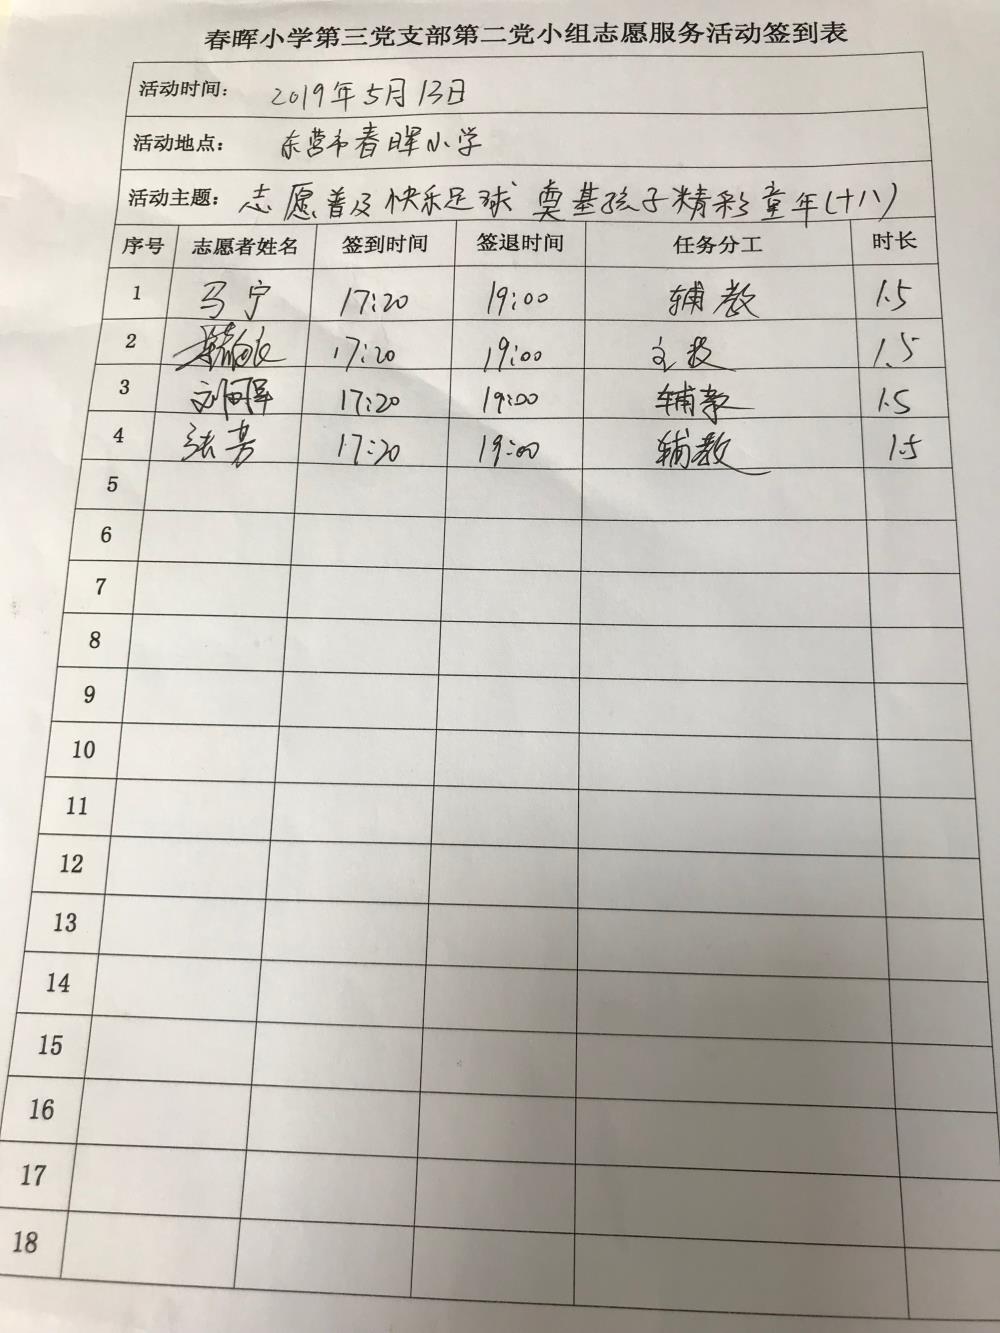 春晖小学第三党支部第二党小组志愿服务活动签到表
活动时间： 2019年5月13日
活动地点： 东营市春晖小学
活动主题： 志愿普及快乐足球 奠基孩子精彩童年(十八)
序号 志愿者姓名 签到时间 签退时间 任务分工 时长
1 马宁 17:20 19:00 辅教 1.5
2 17:20 19:00 主教 1.5
3 17:20 19:00 辅教 1.5
4 张芳 17:20 19:00 辅教 1.5
5
6
7
8
9
10
11
12
13
14
15
16
17
18